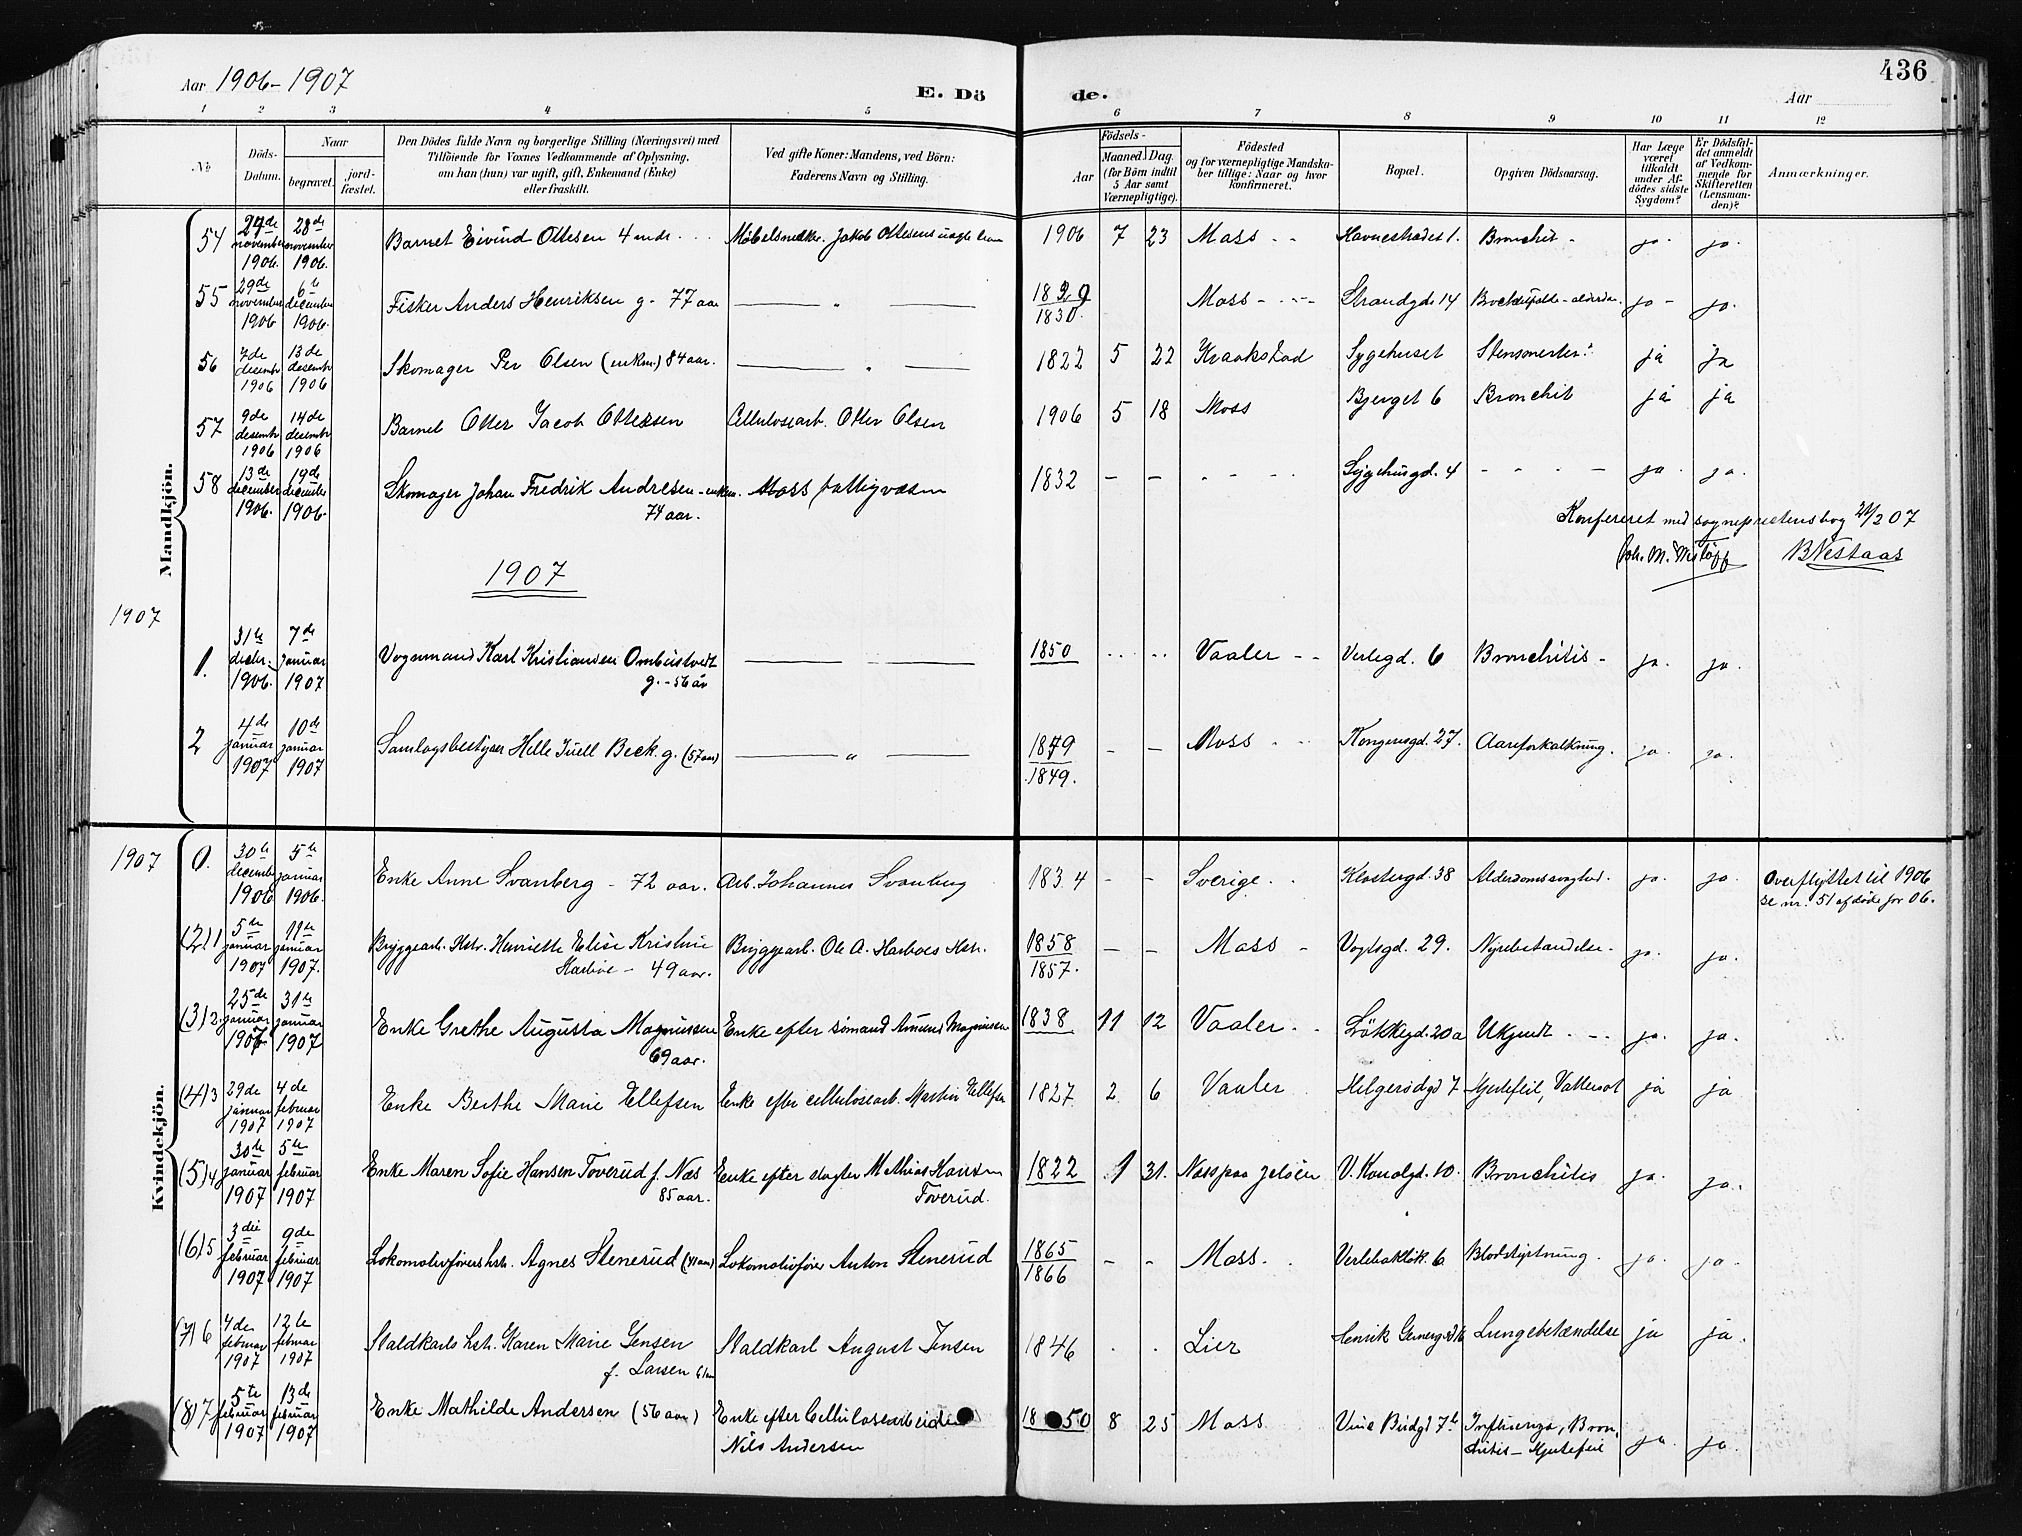 Aar 1906-1907
E. Dö
de.
Aar
436
1 2 3 4 5 6 7 8 9 10 11 12
No
Döds-Datum.
Naar
begravet.
jord-fæstet.
Den Dödes fulde Navn og borgerlige Stilling (Næringsvei) med
Tilföiende for Voxnes Vedkommende af Oplysning,
om han (hun) var ugift, gift, Enkemand (Enke)
eller fraskilt.
Ved gifte Koner: Mandens, ved Börn:
Faderens Navn og Stilling.
Födsels-
Aar
Maaned. Dag.
(for Börn indtil
5 Aar samt
Værnepligtige).
Födested
og for værnepligtige Mandska-
ber tillige: Naar og hvor
konfirmeret.
Bopæl.
Opgiven Dödsaarsag.
Har Læge
været
tilkaldt
under Af-
dödes sidste
Sygdom?
Er Dödsfal-
det anmeldt
af Vedkom-
mende for
Skifteretten
(Lensman-
den)?
Anmærkninger.
Mandkjön.
54 24de november 1906. 28de november 1906. Barnet Eivind Ottesen 4 mdr. Möbelsnedker Jakob Ottesens 1906 7 23 Moss Havnestrædet 1. Bronchit ja. ja.
55 29de november 1906 6te december 1906. Fisker Anders Henriksen g. 77 aar 1829 1830. Moss Strandgd. 14 ja ja.
56 7de desembr 1906 13de desembr 1906 Skomager Per Olsen (enkm.) 84 aar. 1822 5 22 Kraakstad Sygehuset ja ja
57 9de desembr 1906 14de desembr 1906 Barnet Otter Jacob Ottersen Cellulosearb. Otter Olsen 1906 5 18 Moss Bjerget 6 Bronchit ja ja
58 13de december 1906. 19de december 1906. Skomager Johan Fredrik Andresen - enkm. 74 aar. Moss fattigvæsen 1832 - - Sygehusgd. 4 ja. ja.
Konfereret med sogneprestens bog 21/2 07
BNestaas
1907
1907
1. 31te decbr. 1906. 7de januar 1907 Vognmand Karl Kristiansen Ombustvedt g. - 56 år 1850 Vaaler Verlegd. 6 Bronchitis ja. ja.
2 4de januar 1907 10de januar 1907 Samlagsbestyrer Helle Juell Beck g. (57 aar) 1879 1849. - - Moss Kongensgd. 27. Aareforkalkning. ja. ja.
Kvindekjön.
1907
0. 30te december 1906 5te januar 1906. Enke Anne Svanberg - 72 aar. Arb. Johannes Svanberg 1834 - - Sverige. Klostergd. 38 Alderdomssvaghed. ja. ja. Overflyttet til 1906
se nr. 51 af døde for 06.
(2) 1 5te januar 1907 11te januar 1907. Bryggearb. Hstr. Henriette Elise Kristine Harboe - 49 aar. Bryggearb. Ole A. Harboes Hstr. 1858 1857. - - Moss Vogtsgd. 29. Nyrebetændelse. ja. ja.
(3) 2. 25de januar 1907 31te januar 1907 Enke Grethe Augusta Magnussen 69 aar. Enke efter sömand Amund Magnussen 1838 11 12 Vaaler Lökkegd. 20a Ukjendt ja. ja.
(4) 3 29de januar 1907 4de februar 1907 Enke Berthe Marie Ellefsen Enke efter cellulosearb. Martin Ellefsen 1827 2 6 Vaaler Helgerödgd 7 Hjertefeil, Vattersot ja ja
(5) 4 30te januar 1907 5te februar 1907 Enke Maren Sofie Hansen Toverud f. Næs 85 aar. Enke efter slagter Mathias Hansen Toverud. 1822 1 31. Næs paa Jelöen V. Kanalgd. 10. Bronchitis ja. ja.
(6) 5 3die februar 1907 9de februar 1907 Lokomotivförers hstr. Agnes Stenerud (41 aar) Lokomotivförer Anton Stenerud 1865 1866 - - Moss. Verlebakken 6 Blodstyrtning. ja. ja.
(7) 6 7de februar 1907 12te februar 1907 Staldkarls hstr. Karen Marie Jensen f. Larsen Staldkarl August Jensen 1846 Lier Henrik Gernersgd Lungebetændelse ja ja.
(8) 7 5te februar 1907 13de februar 1907 Enke Mathilde Andersen (56 aar) Enke efter Cellulosearbeider Nils Andersen 1850 8 25 Moss Influenza, Bron-
chitis - Hjertefeil ja ja.